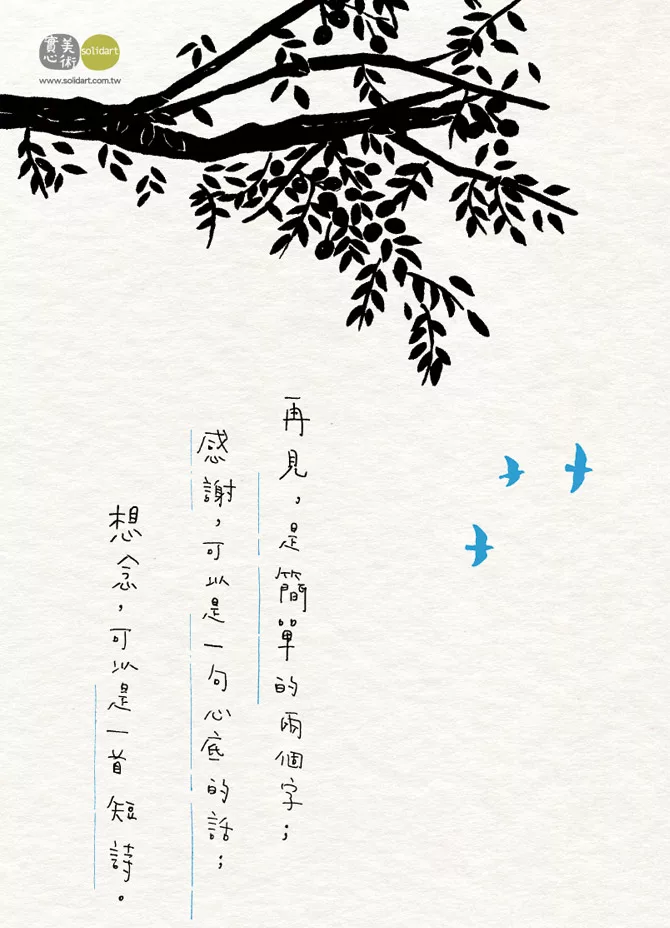 實心美術
solidart
www.solidart.com.tw
再見，是簡單的兩個字；
感謝，可以是一句心底的話；
想念，可以是一首短詩。